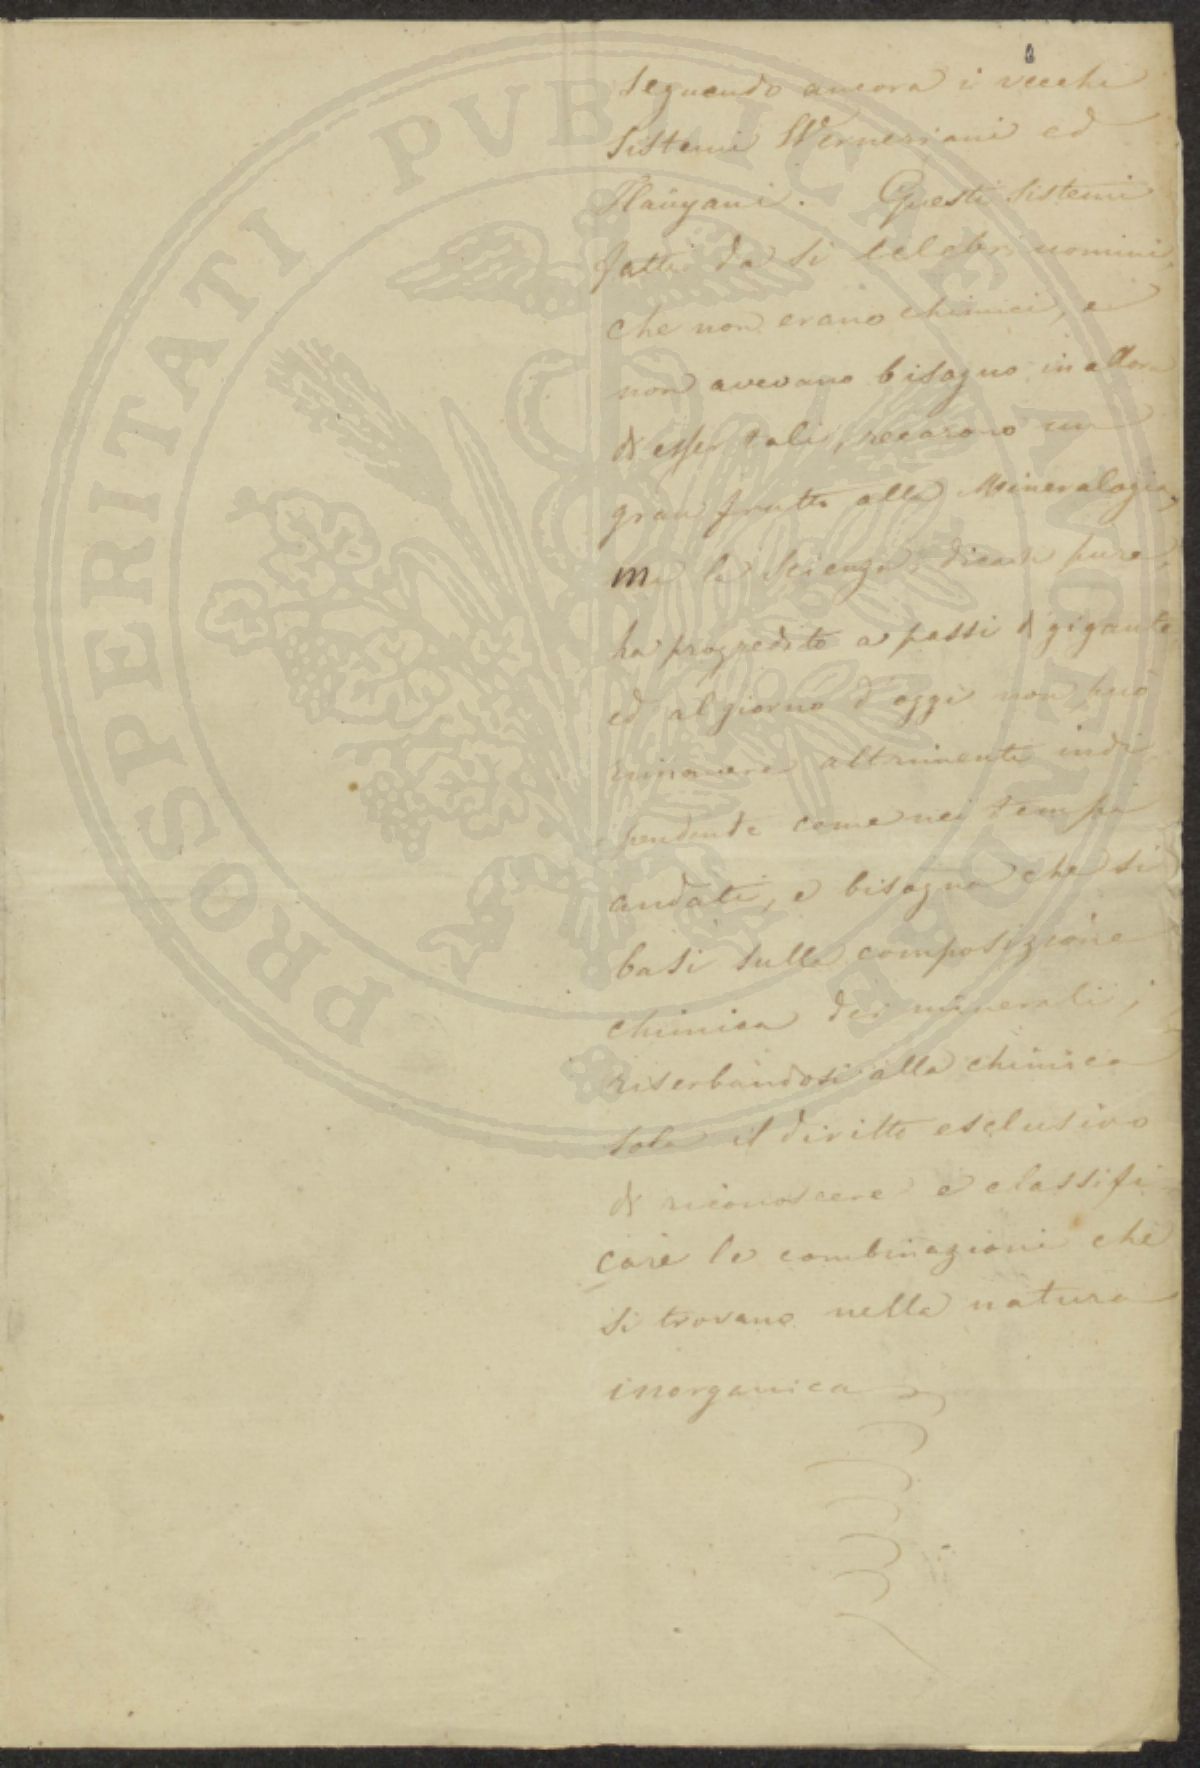 PROSPERITATI PVBLICAE AVGENDAE
seguendo ancora i vecchi
sistemi Werneriani ed
Haüyani. Questi sistemi
fatti da sì celebri uomini,
che non erano chimici, e
non avevano bisogno in allora
di esser tali, recarono un
gran frutto alla Mineralogia,
ma la Scienza, dicasi pure,
ha progredito a passi di gigante
ed al giorno d'oggi non può
rimanere altrimenti indi
pendente come nei tempi
andati, e bisogna che si
basi sulla composizione
chimica dei minerali,
riserbandosi alla chimica
sola il diritto esclusivo
di riconoscere e classifi
care le combinazioni che
si trovano nella natura
inorganica